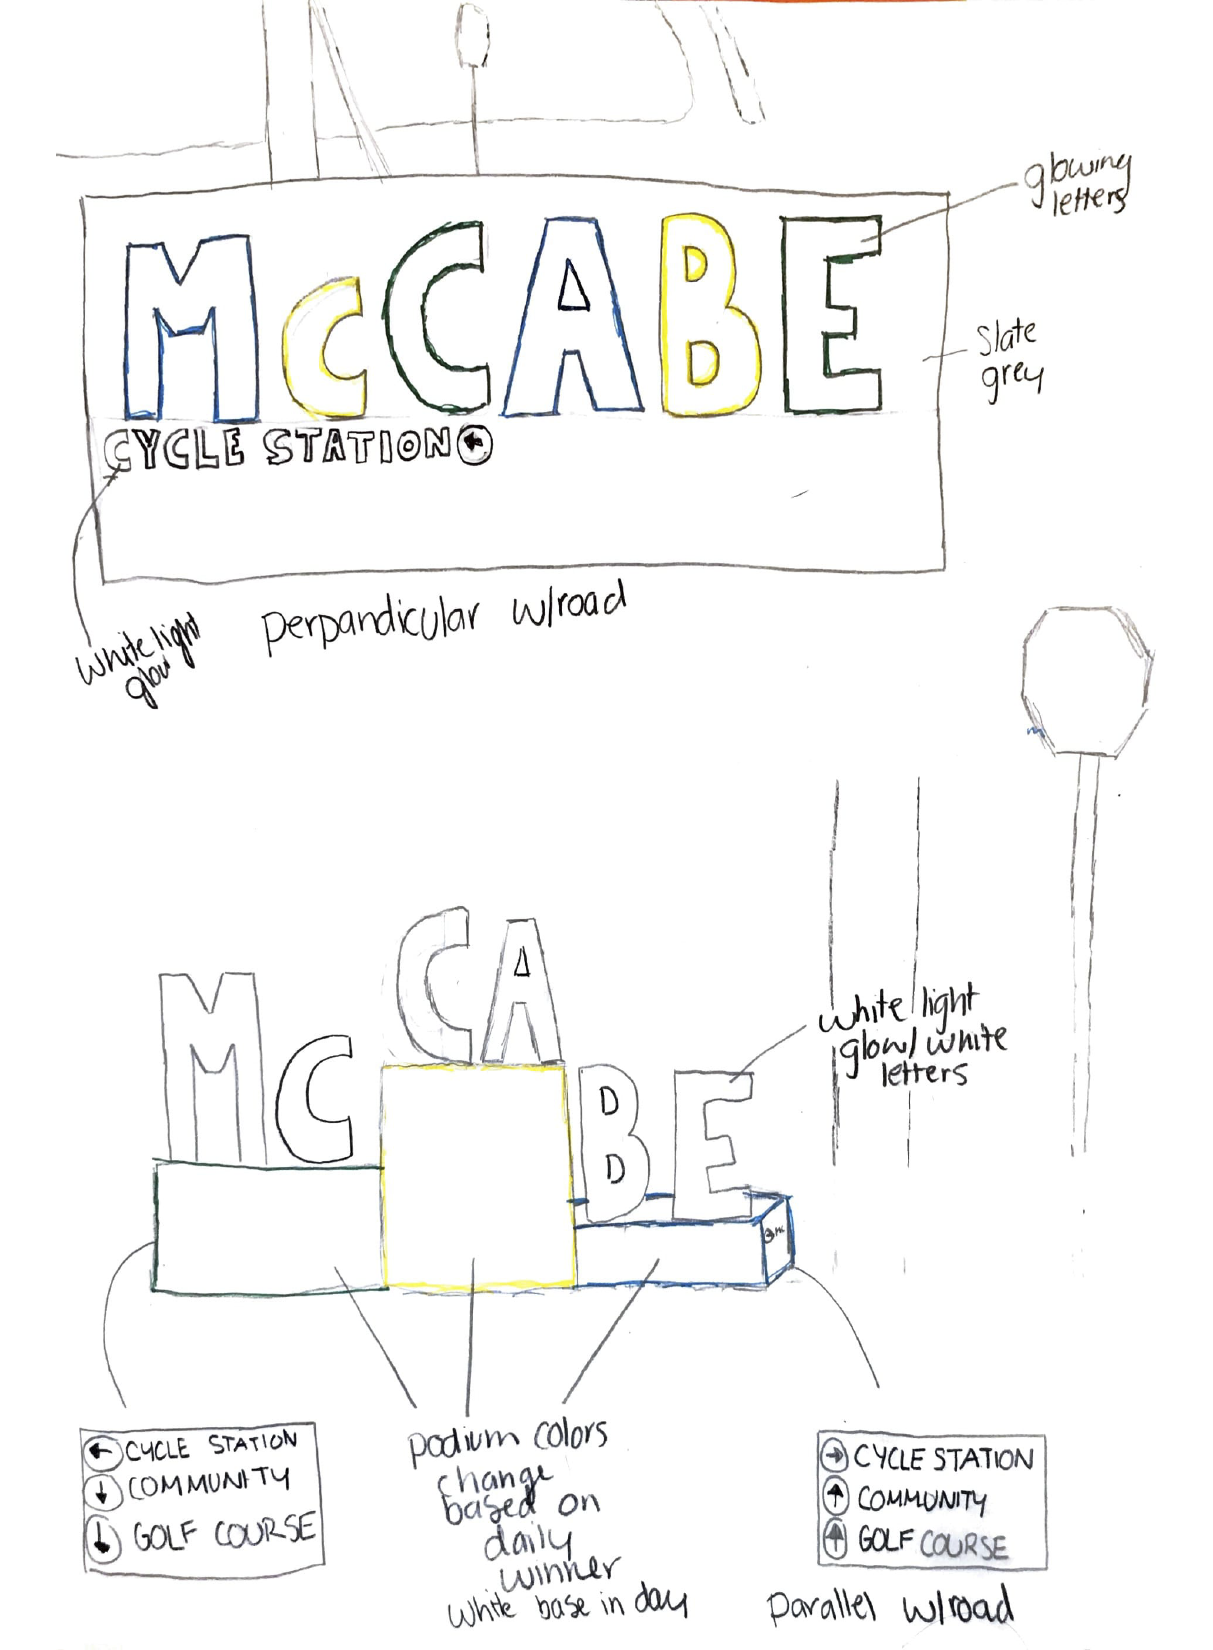 glowing
letters
McCABE
Slate
grey
CYCLE STATION
White light
glow
perpandicular w/road
CA
MC
BE
white light
glow/ white
letters
podium colors
change
based on
daily
winner
white base in day
CYCLE STATION
COMMUNITY
GOLF COURSE
CYCLE STATION
COMMUNITY
GOLF COURSE
parallel w/road